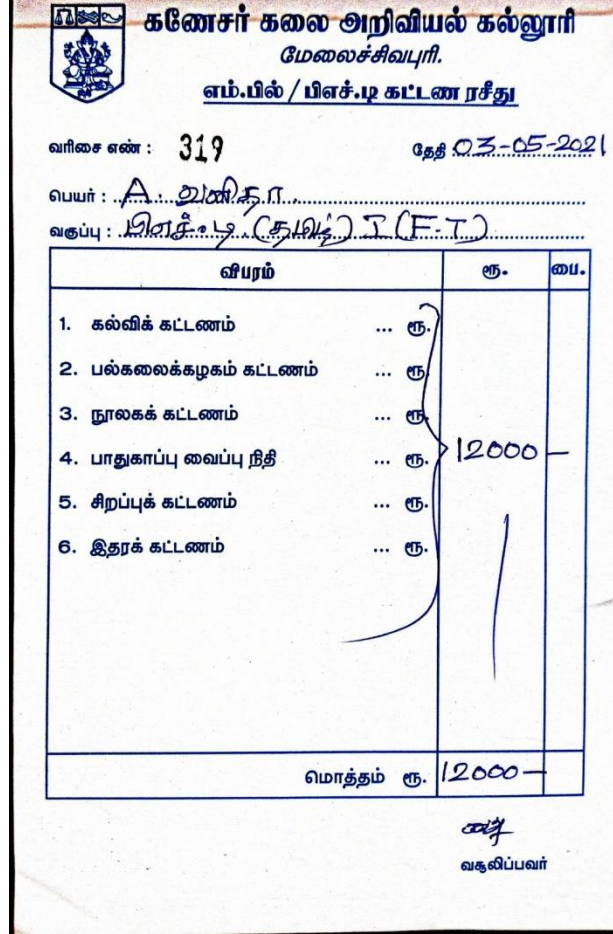 கணேசர் கலை அறிவியல் கல்லூரி
மேலைச்சிவபுரி.
எம்.பில் / பிஎச்.டி கட்டண ரசீது
வரிசை எண் : 319 தேதி 03-05-2021
பெயர் : A. வனிதா.
வகுப்பு : பிஎச்.டி (தமிழ்) I (F.T)
விபரம் ரூ. பை.
1. கல்விக் கட்டணம் ... ரூ.
2. பல்கலைக்கழகம் கட்டணம் ... ரூ.
3. நூலகக் கட்டணம் ... ரூ.
4. பாதுகாப்பு வைப்பு நிதி ... ரூ. 12000 —
5. சிறப்புக் கட்டணம் ... ரூ.
6. இதரக் கட்டணம் ... ரூ.
மொத்தம் ரூ. 12000 —
வசூலிப்பவர்